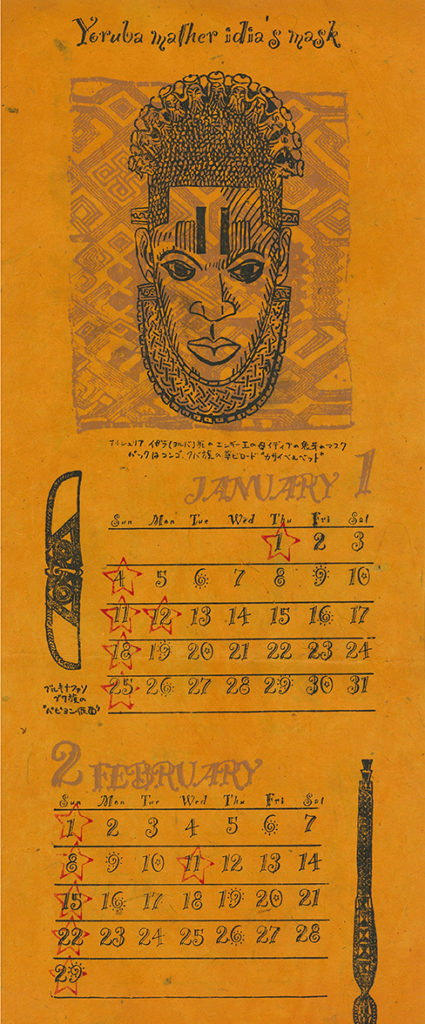 Yoruba mather idia's mask
バックはコンゴ、クバ族の草ビロード"カサイベルベット"
JANUARY 1
Sun Mon Tue Wed Thu Fri Sat
1 2 3
4 5 6 7 8 9 10
11 12 13 14 15 16 17
18 19 20 21 22 23 24
25 26 27 28 29 30 31
ブルキナファソ
ブワ族の
"パピヨン仮面"
2 FEBRUARY
Sun Mon Tue Wed Thu Fri Sat
1 2 3 4 5 6 7
8 9 10 11 12 13 14
15 16 17 18 19 20 21
22 23 24 25 26 27 28
29